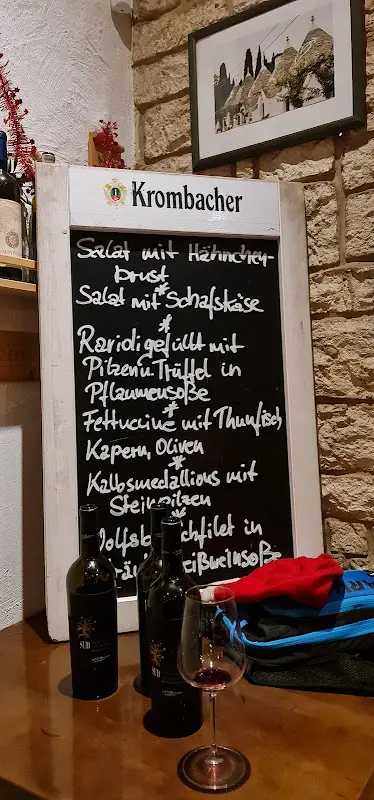 Krombacher
Salat mit Hähnchen-
brust
*
Salat mit Schafskäse
*
Raridi gefüllt mit
Pilzen u. Trüffel in
Pflaumensoße
*
Fettuccine mit Thunfisch
Kapern, Oliven
*
Kalbsmedallious mit
Steinpilzen
*
filet in
SUD
SUD